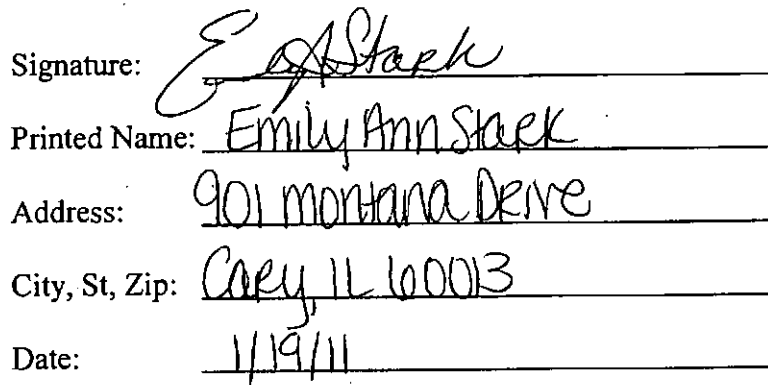 Signature: E A Stark
Printed Name: Emily Ann Stark
Address: 901 Montana Drive
City, St, Zip: Cary, IL 60013
Date: 1/19/11